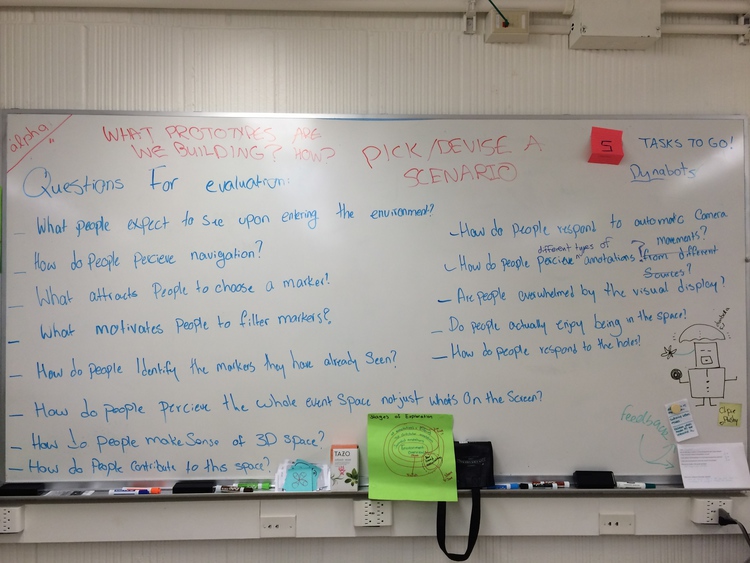 alpha
WHAT PROTOTYPES ARE
WE BUILDING? HOW?
PICK/DEVISE A
SCENARIO
5
TASKS TO GO!
Dynabots
Questions For evaluation:
- What people expect to see upon entering the environment?
- How do People percieve navigation?
- What attracts People to choose a marker?
- What motivates People to filter markers?
- How do people Identify the markers they have already seen?
- How do people percieve the whole event space not just what's On the Screen?
- How do people make Sense of 3D space?
- How do People Contribute to this space?
- How do People respond to automatic Camera
movements?
different types of
- How do people percieve anotations from different
Sources?
- Are people overwhelmed by the visual display?
- Do people actually enjoy being in the space?
- How do people respond to the holes?
Feedback
Stages of Exploration
TAZO